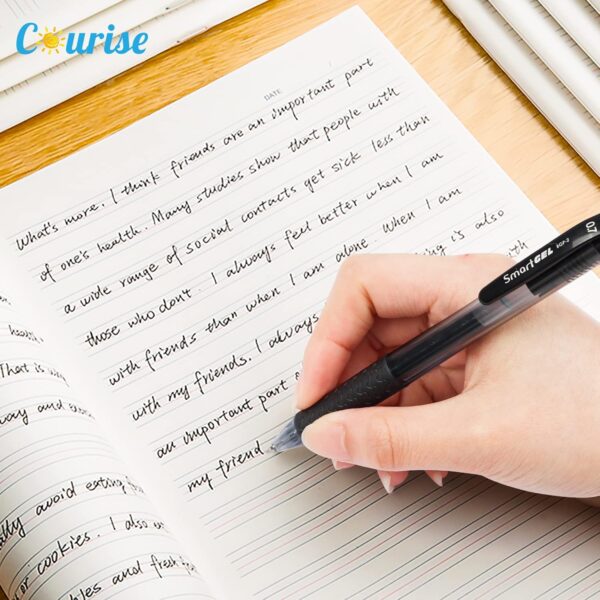 Courise
DATE
What's more, I think friends are an important part
of one's health. Many studies show that people with
a wide range of social contacts get sick less than
those who don't. I always feel better when I am
with friends than when I am alone. When I am
with my friends, I always is also
an important part with
my friend
health
That is
way and
avoid eating
or cookies. I also
and fresh
SmartGEL
0.7